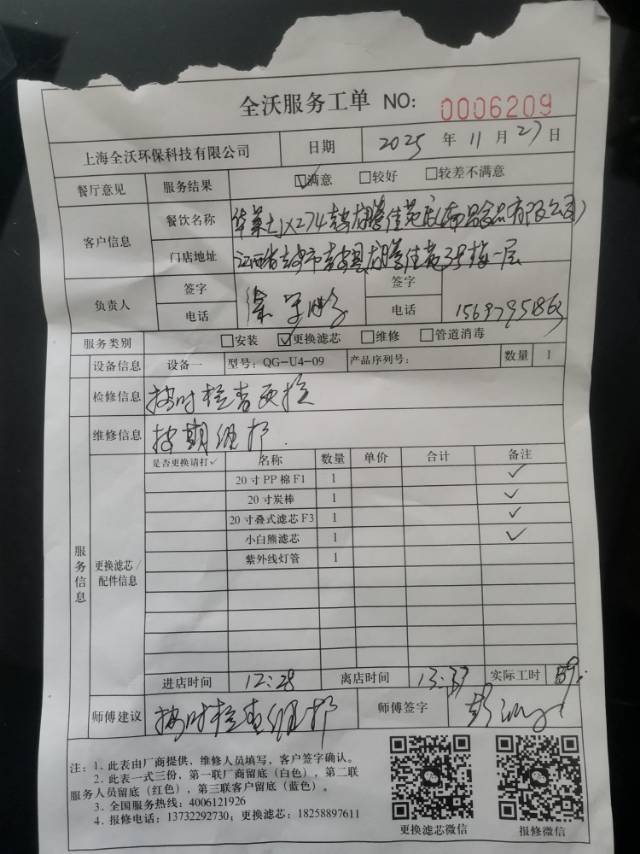 全沃服务工单 NO: 0006209
上海全沃环保科技有限公司 日期 2025 年 11 月 27 日
餐厅意见 服务结果 ☑满意 □较好 □较差不满意
客户信息 餐饮名称
门店地址 江西省吉安市吉安县 一层
负责人 签字 徐 签字
电话 电话
服务类别 □安装 ☑更换滤芯 □维修 □管道消毒
设备信息 设备一 型号: QG-U4-09 产品序列号: 数量 1
检修信息 按时检查更换
维修信息 按期维护.
服务信息
更换滤芯/配件信息
是否更换请打✓ 名称 数量 单价 合计 备注
20寸PP棉F1 1 ✓
20寸炭棒 1 ✓
20寸叠式滤芯F3 1 ✓
小白熊滤芯 1 ✓
紫外线灯管 1
进店时间 12:28 离店时间 13:37 实际工时
师傅建议 按时检查维护 师傅签字 彭
注: 1. 此表由厂商提供, 维修人员填写, 客户签字确认。
2. 此表一式三份, 第一联厂商留底(白色), 第二联
服务人员留底(红色), 第三联客户留底(蓝色)。
3. 全国服务热线: 4006121926
4. 报修电话: 13732292730; 更换滤芯: 18258897611
更换滤芯微信 报修微信